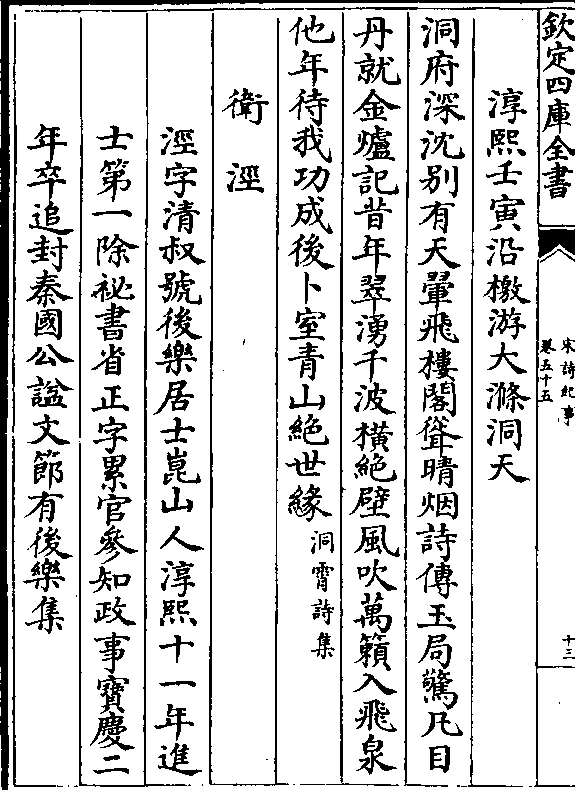 欽定四庫全書
宋詩紀事
卷五十五
十三
淳熙壬寅沿檄游大滌洞天
洞府深沈别有天翬飛樓閣聳晴烟詩傳玉局驚凡目
丹就金爐記昔年翠湧千波横絶壁風吹萬籟入飛泉
他年待我功成後卜室青山絶世緣洞霄詩集
衛涇
涇字清叔號後樂居士崑山人淳熙十一年進
士第一除祕書省正字累官參知政事寶慶二
年卒追封秦國公諡文節有後樂集